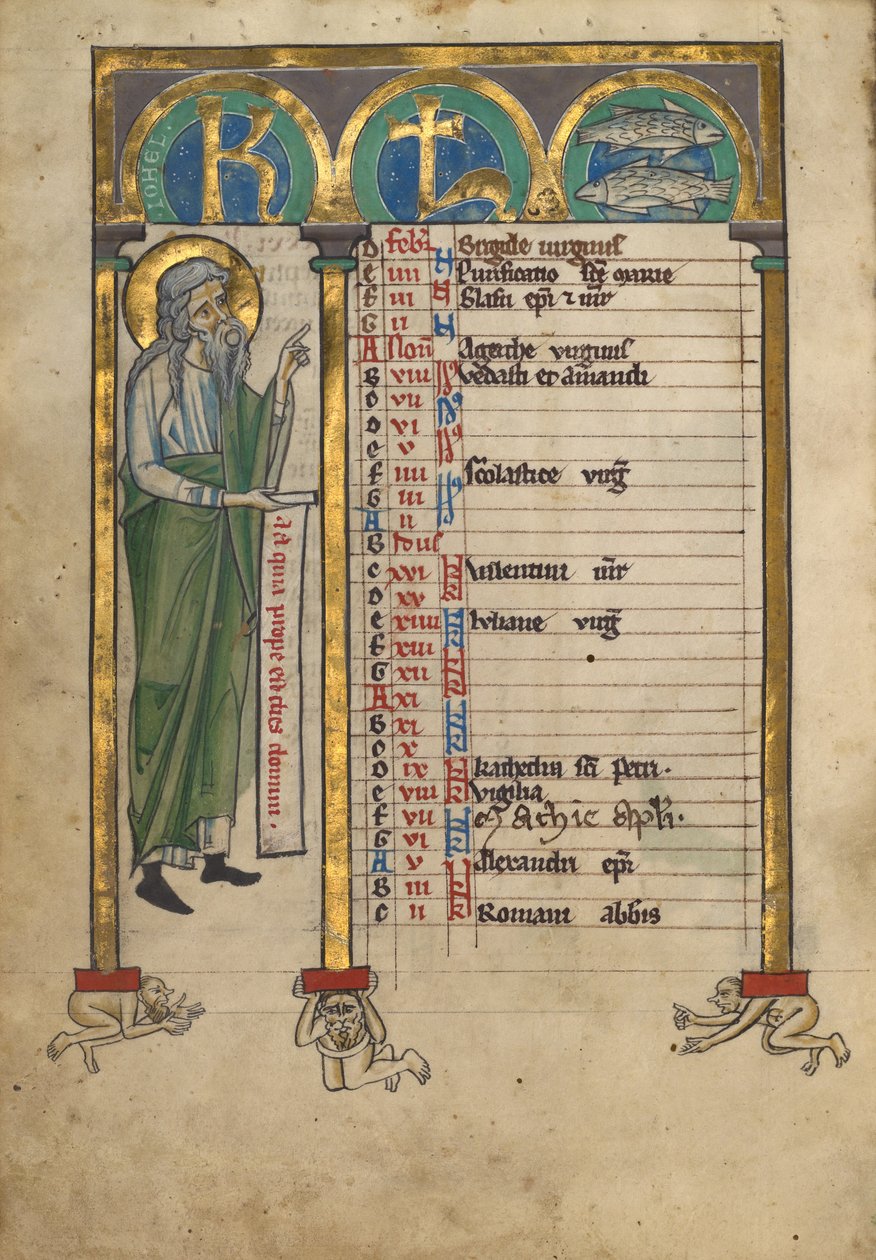 IOHEL.
K L
D febr Brigide virginis
E iiii Purificatio sce marie
F iii Blasii epi 7 mr
G ii
A Non Agathe virginis
B viii Vedasti et Amandi
C vii
D vi
E v
F iiii Scolastice virg
G iii
A ii
B Idus
C xvi Valentini mr
D xv
E xiiii Iuliane virg
F xiii
G xii
A xi
B xi
C x
D ix Kathedra sci Petri.
E viii Vigilia
F vii Mathie apli.
G vi
A v Alexandri epi
B iii
C ii Romani abbis
quia prope est dies domini.